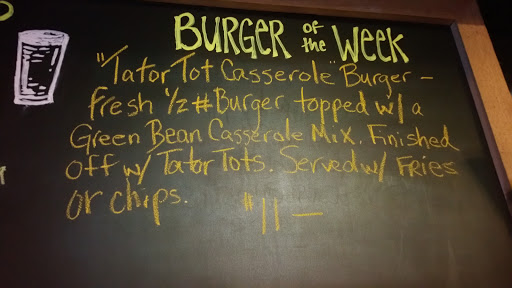 BURGER of the WEEK
"Tator Tot Casserole" Burger -
fresh 1/2# Burger topped w/ a
Green Bean Casserole Mix. Finished
off w/ Tator Tots. Served w/ FRIES
or chips. $11 —